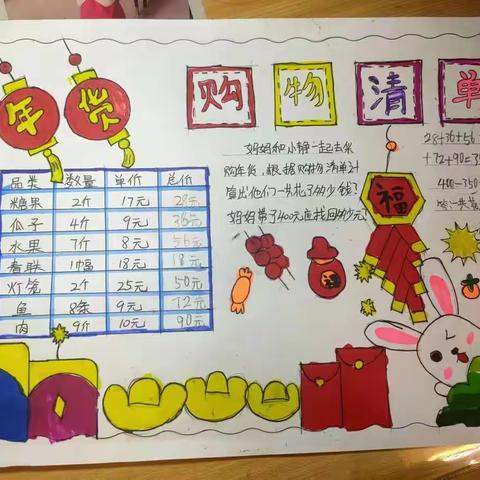 年货
购物清单
品类 数量 单价 总价
糖果 2斤 17元 28元
瓜子 4斤 9元 36元
水果 7斤 8元 56元
春联 1幅 18元 18元
灯笼 2个 25元 50元
鱼 8条 9元 72元
肉 9斤 10元 90元
妈妈和小静一起去采
购年货,根据购物清单计
算出他们一共花了多少钱?
妈妈带了400元应找回多少元?
28+36+56+
+72+90=35
400-350=
福